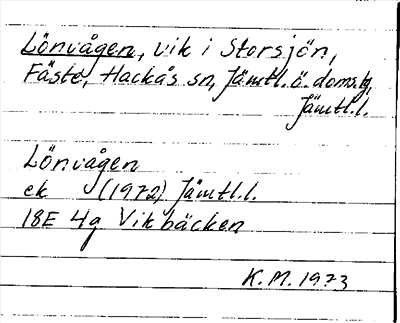 Lönvågen, vik i Storsjön,
Fäste, Hackås sn, Jämtl. ö. doms.,
Jämtl.l.
Lönvågen
ek (1972) Jämtl.l.
18E 4g Vikbäcken
K.M. 1973